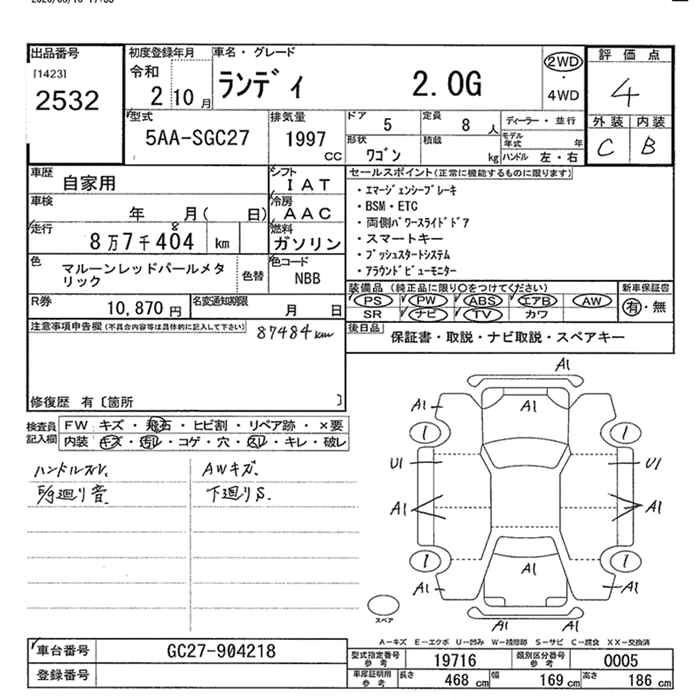 出品番号
[1423]
2532
初度登録年月
令和
2 10 月
車名・グレード
ランディ 2.0G
2WD
・
4WD
評価点
4
外装 内装
C B
型式
5AA-SGC27
排気量
1997
CC
ドア 5
定員 8 人
ディーラー・並行
形状 ワゴン
積載 kg
モデル年式 年
ハンドル 左・右
車歴 自家用
シフト IAT
車検 年 月( 日)
冷房 AAC
走行 8万7千404 km
8
燃料 ガソリン
色 マルーンレッドパールメタリック
色替
色コード NBB
R券 10,870 円
名変通知期限 月 日
セールスポイント(正常に機能するものに限ります)
・エマージェンシーブレーキ
・BSM・ETC
・両側パワースライドドア
・スマートキー
・プッシュスタートシステム
・アラウンドビューモニター
装備品 (純正品に限り○をつけてください)
新車保証書
PS PW ABS エアB AW
SR ナビ TV カワ
有・無
後日品 保証書・取説・ナビ取説・スペアキー
注意事項申告欄(不具合内容等は具体的に記入して下さい)
87484km
修復歴 有〔箇所 〕
検査員記入欄
FW キズ・飛石・ヒビ割・リペア跡・×要
内装 キズ・汚レ・コゲ・穴・スレ・キレ・破レ
ハンドルスレ.
AWキズ.
下廻りS.
A1
A1 A1 A1
1 1
U1 U1
A1 A1
1 1
A1 A1 A1
A1 A1
スペア
A-キズ E-エクボ U-凹み W-補修跡 S-サビ C-腐食 XX-交換済
車台番号 GC27-904218
登録番号
型式指定番号 参考 19716
類別区分番号 参考 0005
車庫証明用 参考
長さ 468 cm
幅 169 cm
高さ 186 cm